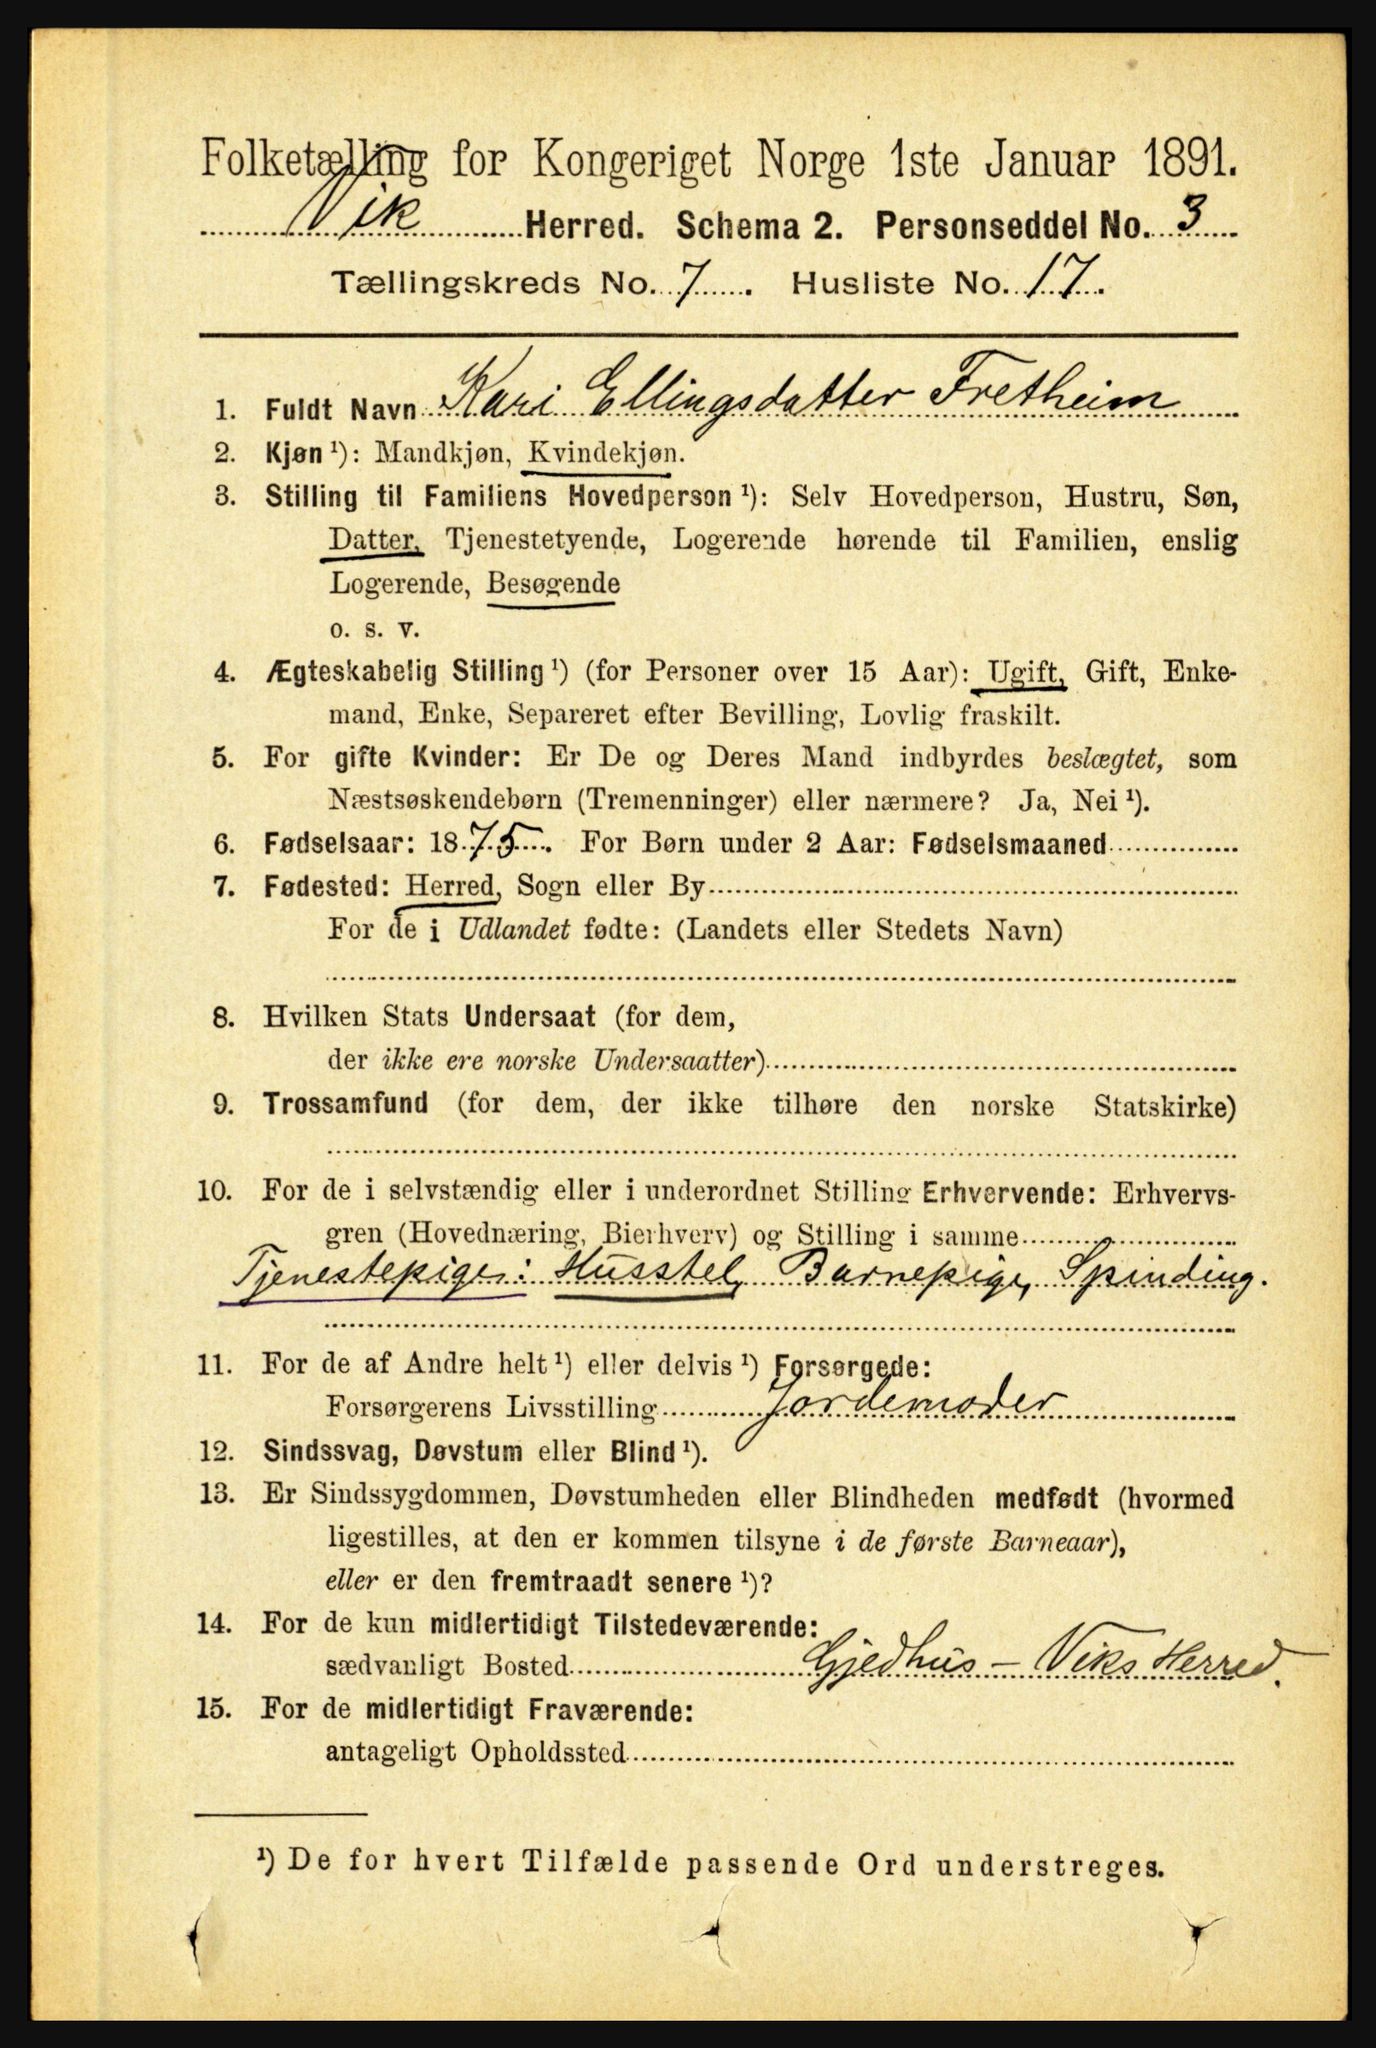 Folketælling for Kongeriget Norge 1ste Januar 1891.
Vik Herred. Schema 2. Personseddel No. 3
Tællingskreds No. 7. Husliste No. 17.
1. Fuldt Navn Kari Ellingsdatter Fretheim
2. Kjøn ¹): Mandkjøn, Kvindekjøn.
3. Stilling til Familiens Hovedperson ¹): Selv Hovedperson, Hustru, Søn,
Datter, Tjenestetyende, Logerende hørende til Familien, enslig
Logerende, Besøgende
o. s. v.
4. Ægteskabelig Stilling ¹) (for Personer over 15 Aar): Ugift, Gift, Enke-
mand, Enke, Separeret efter Bevilling, Lovlig fraskilt.
5. For gifte Kvinder: Er De og Deres Mand indbyrdes beslægtet, som
Næstsøskendebørn (Tremenninger) eller nærmere? Ja, Nei ¹).
6. Fødselsaar: 1875. For Børn under 2 Aar: Fødselsmaaned
7. Fødested: Herred, Sogn eller By
For de i Udlandet fødte: (Landets eller Stedets Navn)
8. Hvilken Stats Undersaat (for dem,
der ikke ere norske Undersaatter)
9. Trossamfund (for dem, der ikke tilhøre den norske Statskirke)
10. For de i selvstændig eller i underordnet Stilling Erhvervende: Erhvervs-
gren (Hovednæring, Bierhverv) og Stilling i samme
Tjenestepige: Husstel, Barnepige, Spinding.
11. For de af Andre helt ¹) eller delvis ¹) Forsørgede:
Forsørgerens Livsstilling Jordemoder
12. Sindssvag, Døvstum eller Blind ¹).
13. Er Sindssygdommen, Døvstumheden eller Blindheden medfødt (hvormed
ligestilles, at den er kommen tilsyne i de første Barneaar),
eller er den fremtraadt senere ¹)?
14. For de kun midlertidigt Tilstedeværende:
sædvanligt Bosted Gjedhus - Viks Herred.
15. For de midlertidigt Fraværende:
antageligt Opholdssted
¹) De for hvert Tilfælde passende Ord understreges.